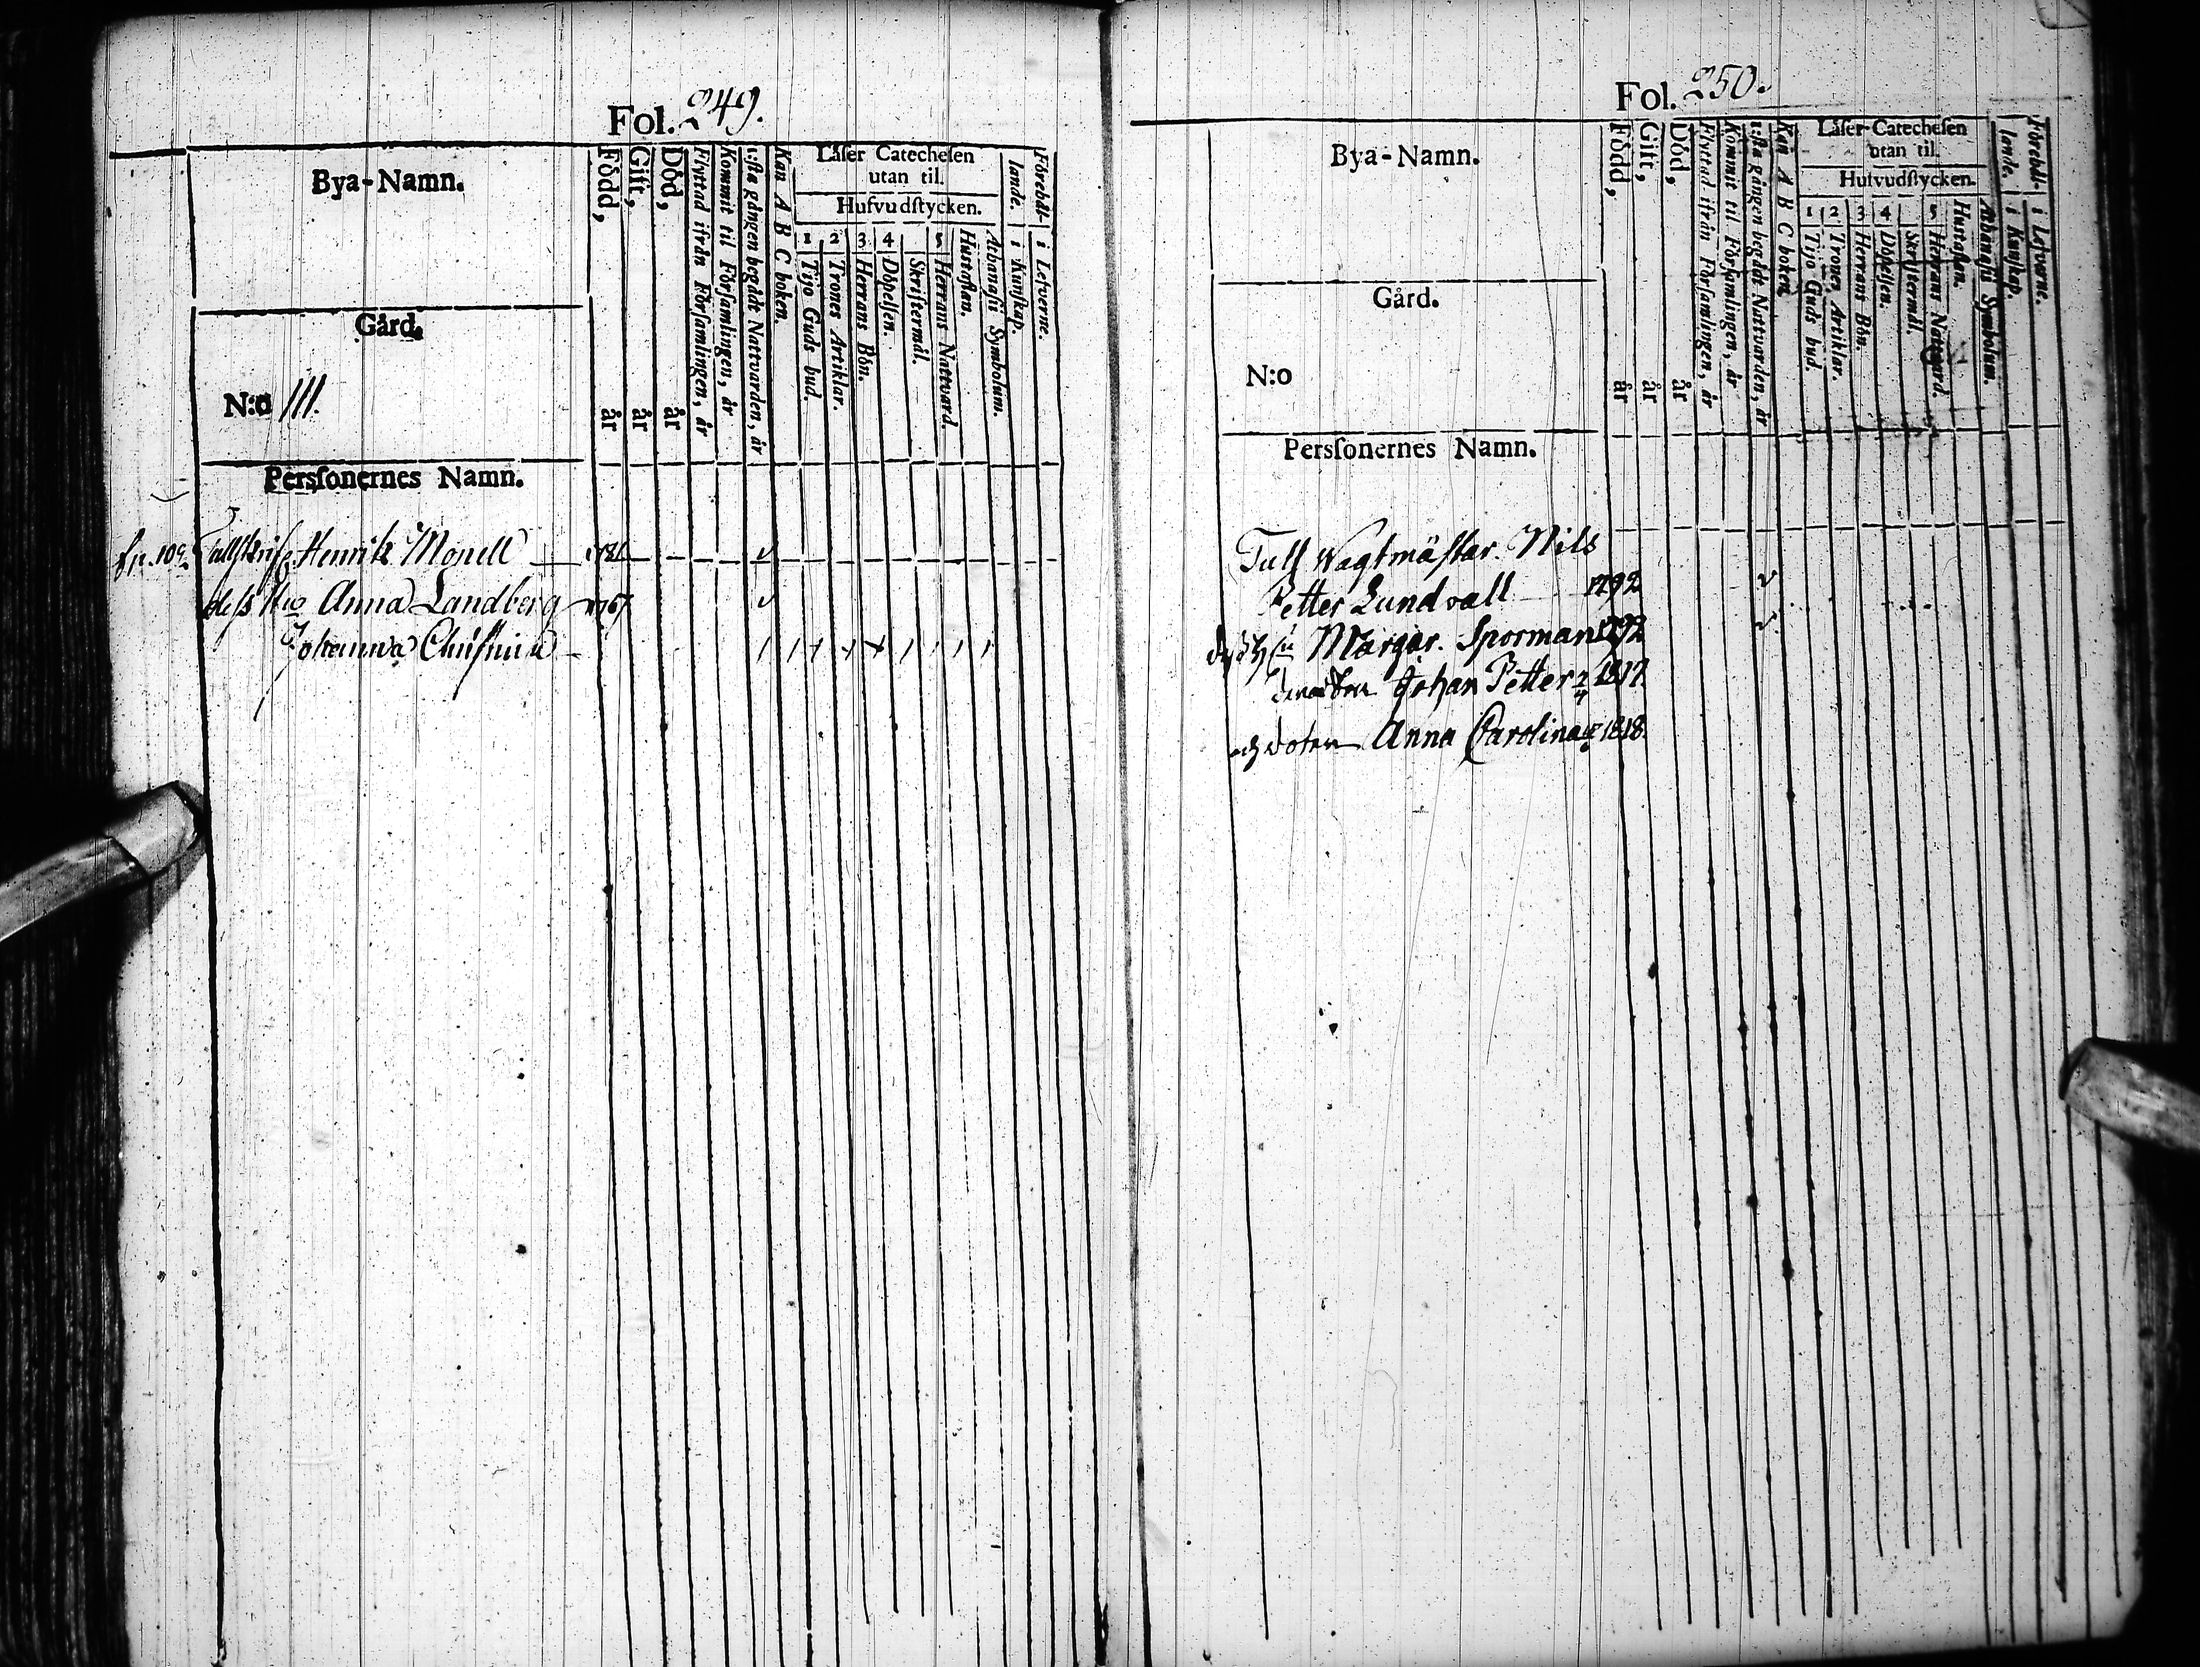 Fol. 249.
Bya-Namn.
Gård.
N:o 111.
Persſonernes Namn.
Född, år
Gift, år
Död, år
Flyttad ifrån Förſamlingen, år
Kommit til Förſamlingen, år
1:ſta gången begådt Nattvarden, år
Kan A B C boken.
Läſer Catecheſen
utan til.
Hufvudſtycken.
1 Tijo Guds bud.
2 Trones Artiklar.
3 Herrans Bön.
4 Döpelſen.
Skriftermål.
5 Herrans Nattvard.
Huſtaflan.
Athanaſii Symbolum.
Förehål-
lande.
i Kunſkap.
i Lefverne.
Henrik Monell
deſs Anna Landberg 1767
Johanna Chriſtina
Fol. 250.
Bya-Namn.
Gård.
N:o
Perſonernes Namn.
Född, år
Gift, år
Död, år
Flyttad ifrån Förſamlingen, år
Kommit til Förſamlingen, år
1:ſta gången begådt Nattvarden, år
Kan A B C boken.
Läſer Catecheſen
utan til.
Hufvudſtycken.
1 Tijo Guds bud.
2 Trones Artiklar.
3 Herrans Bön.
4 Döpelſen.
Skriftermål.
5 Herrans Nattvard.
Huſtaflan.
Athanaſii Symbolum.
Förehål-
lande.
i Kunſkap.
i Lefverne.
Tull Wagtmäſtar. Nils
Petter Lundvall 1792
Margar. Sporman 1792
Johan Petter 1817.
Anna Carolina 1818.